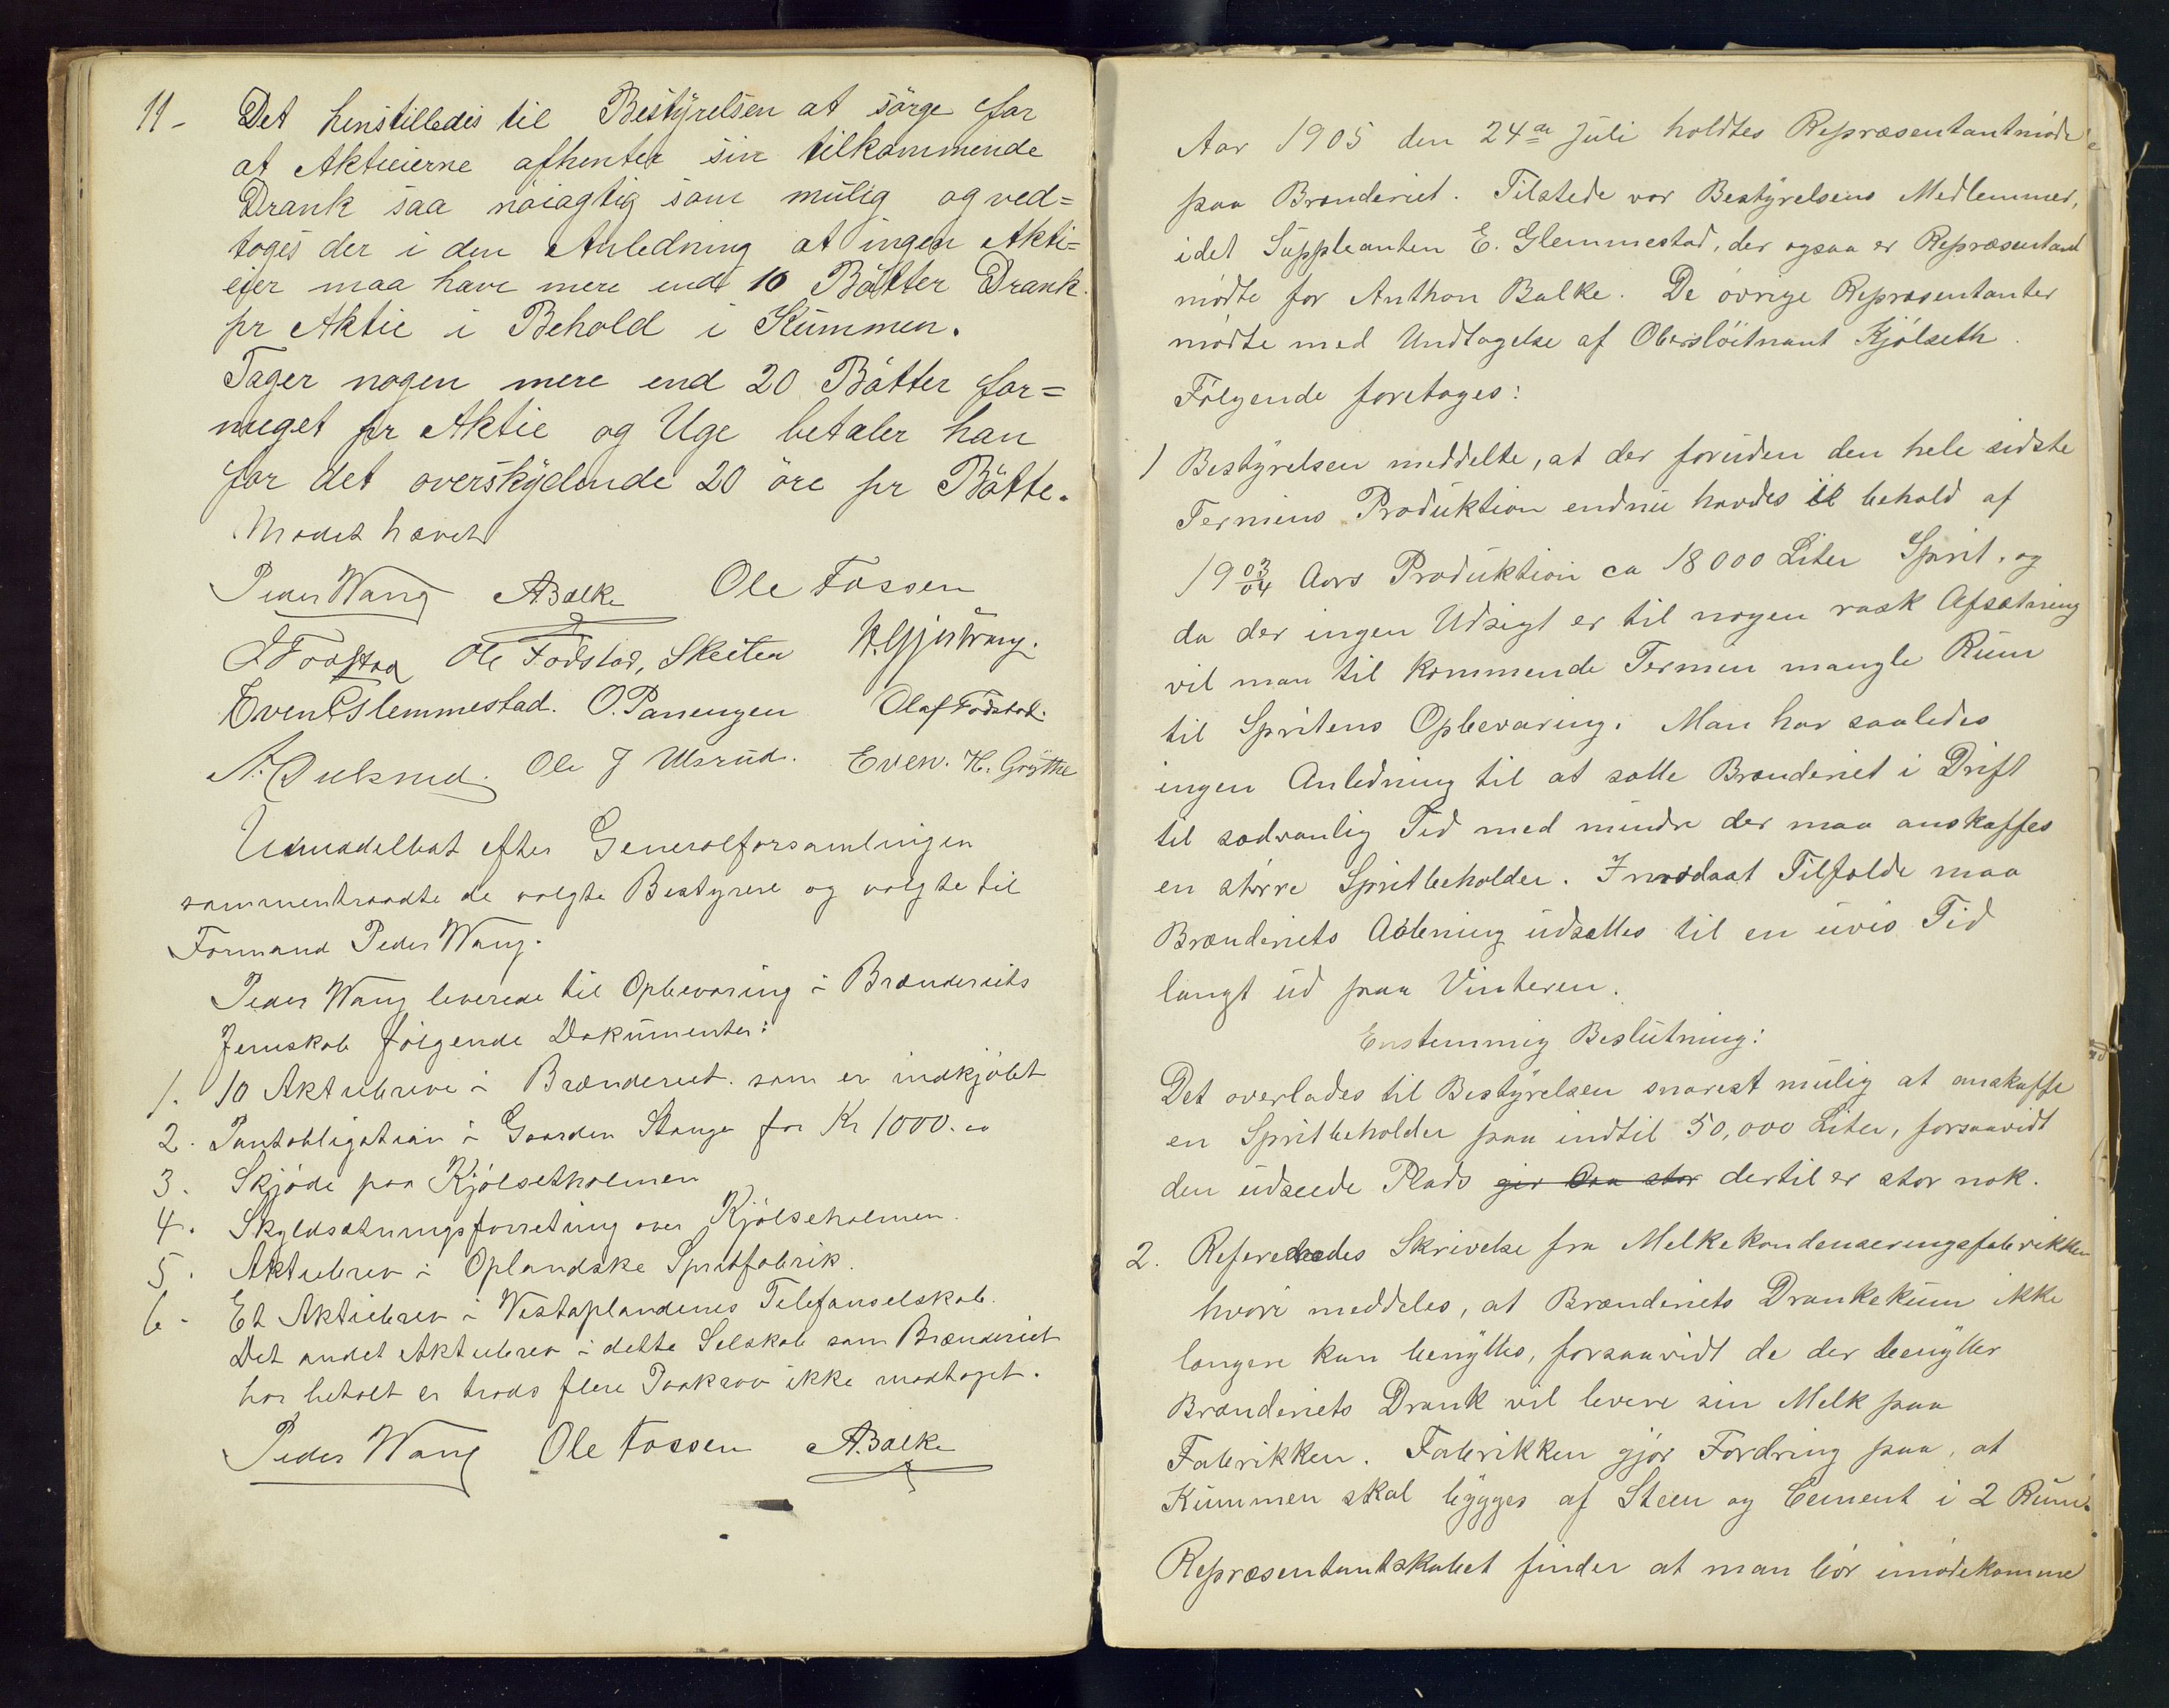 11- Det henstilledes til Bestyrelsen at sörge for
at Aktieierne afhenter sin tilkommende
Drank saa nöiagtig som mulig og ved=
toges der i den Anledning at ingen Akti=
eier maa have mere end 10 Bötter Drank
pr Aktie i Behold i Kummen.
Tager nogen mere end 20 Bötter for=
meget pr Aktie og Uge betaler han
for det overskydende 20 öre pr Bötte.
Mödet hævet
Peder Wang ABalke Ole Fossen
Ole Fodstad, Skeiten
Even Glemmestad. O. Panengen Olaf Fodstad.
Ole J Ulsrud. Even. H. Grythe
Umiddelbat efter Generalforsamlingen
sammentraadte de valgte Bestyrere og valgte til
Formand Peder Wang.
Peder Wang leverede til Opbevaring i Brænderiets
Jernskab fölgende Dokumenter:
1. 10 Aktiebreve i Brænderiet som er indkjöbt
2. Pantobligation i Gaarden Stange for Kr 1000.00
3. Skjöde paa Kjölsetholmen
4. Skyldsætningsforretning over Kjölseholmen.
5. Aktiebrev i Oplandske Spritfabrik.
6. Et Aktiebrev i Vestoplandenes Telefonselskab.
Det andet Aktiebrev i dette Selskab som Brænderiet
har betalt er trods flere Paakrav ikke modtaget.
Peder Wang Ole Fossen ABalke
Aar 1905 den 24de Juli holdtes Repræsentantmöde
paa Brænderiet. Tilstede var Bestyrelsens Medlemmer,
idet Suppleanten E. Glemmestad, der ogsaa er Repræsentant
mödte for Anthon Balke. De övrige Repræsentanter
mödte med Undtagelse af Oberslöitnant Kjölseth.
Fölgende foretoges:
1 Bestyrelsen meddelte, at der foruden den hele sidste
Termins Produktion endnu havdes i behold af
19 03/04 Aars Produktion ca 18000 Liter Sprit, og
da der ingen Udsigt er til nogen rask Afsætning
vil man til kommende Termin mangle Rum
til Spritens Opbevaring. Man har saaledes
ingen Anledning til at sætte Brænderiet i Drift
til sædvanlig Tid med mindre der maa anskaffes
en större Spritbeholder. I modsat Tilfælde maa
Brænderiets Aabning udsættes til en uvis Tid
langt ud paa Vinteren.
Enstemmig Beslutning:
Det overlades til Bestyrelsen snarest mulig at anskaffe
en Spritbeholder paa indtil 50,000 Liter, forsaavidt
den udseede Plads gir saa stor dertil er stor nok.
2. Refereredes Skrivelse fra Melkekondenseringsfabrikken
hvori meddeles, at Brænderiets Drankekum ikke
længere kan benyttes, forsaavidt de der benytter
Brænderiets Drank vil levere sin Melk paa
Fabrikken. Fabrikken gjör Fordring paa, at
Kummen skal bygges af Steen og Cement i 2 Rum.
Repræsentantskabet finder at man bör imödekomme